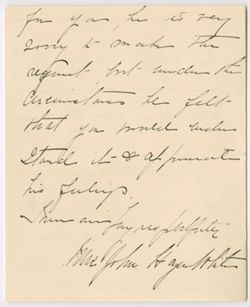 for you, he is very
sorry to make the
request but under the
circumstances he felt
that you would under
stand it & appreciate
his feelings.
I am
Mrs John